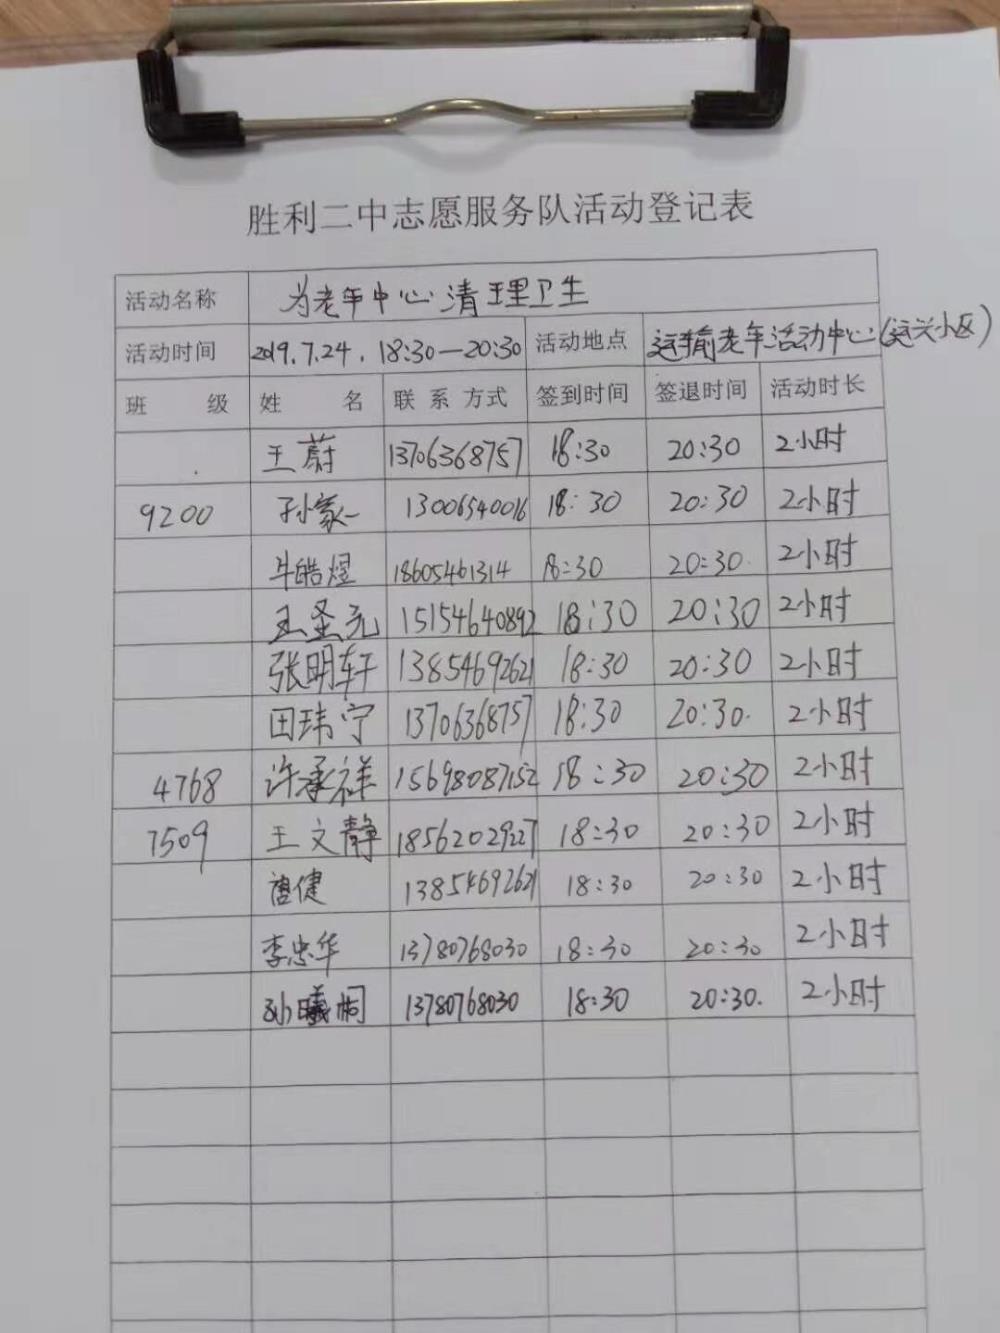 胜利二中志愿服务队活动登记表
活动名称 为老年中心清理卫生
活动时间 2019.7.24. 18:30—20:30 活动地点 运输老年活动中心(运兴小区)
班 级 姓 名 联 系 方式 签到时间 签退时间 活动时长
王蔚 13706368757 18:30 20:30 2小时
9200 孙家一 13006540016 18:30 20:30 2小时
牛皓煜 18605461314 18:30 20:30 2小时
王圣元 15154640892 18:30 20:30 2小时
张明轩 13854692621 18:30 20:30 2小时
田玮宁 13706368757 18:30 20:30. 2小时
4768 许承祥 15698087152 18:30 20:30 2小时
7509 王文静 18562029227 18:30 20:30 2小时
唐健 13854692621 18:30 20:30 2小时
李忠华 13780768030 18:30 20:30 2小时
孙曦桐 13780768030 18:30 20:30. 2小时